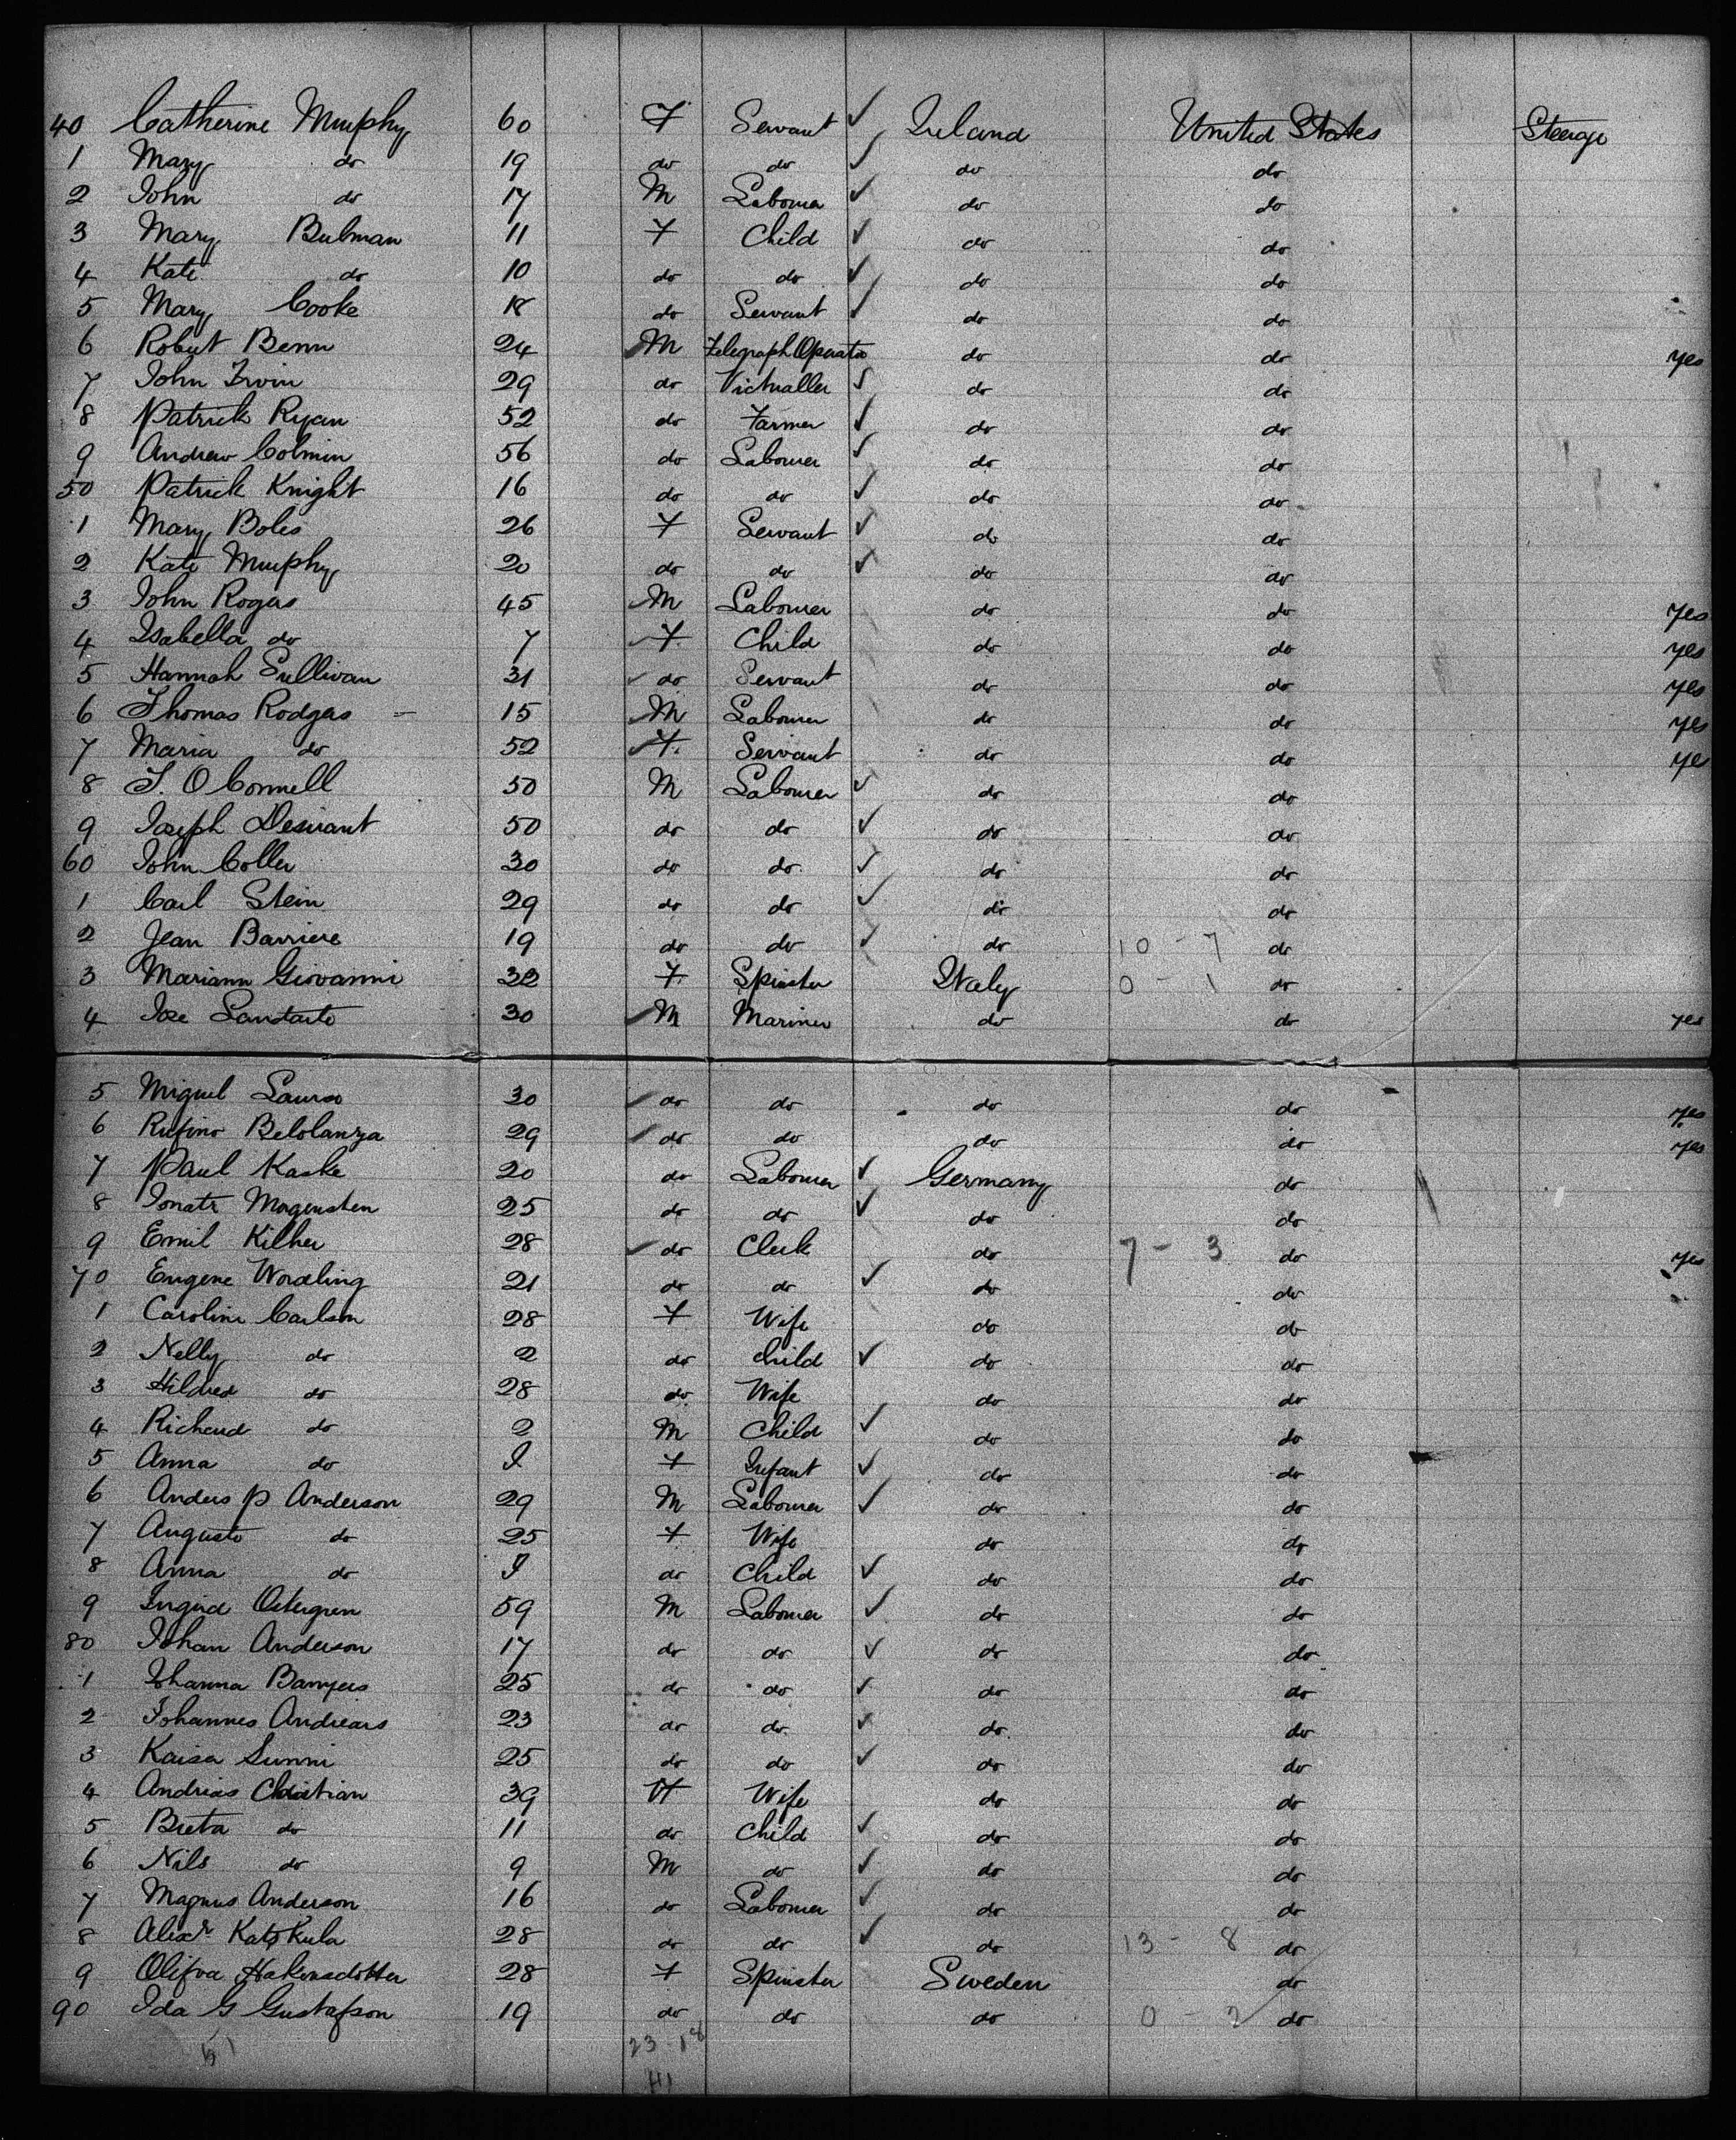 40 Catherine Murphy 60 F Servant ✓ Ireland United States Steerage
1 Mary do 19 do do ✓ do do
2 John do 17 M Labourer ✓ do do
3 Mary Bulman 11 F Child ✓ do do
4 Kate do 10 do do ✓ do do
5 Mary Cooke 18 do Servant ✓ do do
6 Robert Benn 24 ✓ M Telegraph Operator do do yes
7 John Irvin 29 do Victualler ✓ do do
8 Patrick Ryan 52 do Farmer ✓ do do
9 Andrew Colmin 56 do Labourer ✓ do do
50 Patrick Knight 16 do do ✓ do do
1 Mary Boles 26 F Servant ✓ do do
2 Kate Murphy 20 do do ✓ do do
3 John Rogers 45 ✓ M Labourer do do yes
4 Isabella do 7 ✓ F Child do do yes
5 Hannah Sullivan 31 ✓ do Servant do do yes
6 Thomas Rodgers 15 ✓ M Labourer do do yes
7 Maria do 52 ✓ F. Servant do do ye
8 T. O Connell 50 M Labourer ✓ do do
9 Joseph Desirant 50 do do ✓ do do
60 John Coller 30 do do ✓ do do
1 Carl Stein 29 do do ✓ do do
2 Jean Barriere 19 do do ✓ do 10 - 7 do
3 Mariann Giovanni 32 F Spinster Italy 0 - 1 do
4 Jose Santarto 30 ✓ M Mariner do do yes
5 Miguel Lauro 30 ✓ do do do do yes
6 Rufino Belolanza 29 ✓ do do do do yes
7 Paul Kaske 20 do Labourer ✓ Germany do
8 Magensten 25 do do ✓ do do
9 Emil Kilher 28 ✓ do Clerk do 7 - 3 do yes
70 Eugene Wordling 21 do do ✓ do do
1 Caroline Carlson 28 F Wife do do
2 Nelly do 2 do Child ✓ do do
3 Hildred do 28 do Wife do do
4 Richard do 2 M Child ✓ do do
5 Anna do I F Infant ✓ do do
6 Anders P Anderson 29 M Labourer ✓ do do
7 Augusta do 25 F Wife do do
8 Anna do I do Child ✓ do do
9 Ingrid Ostergren 59 M Labourer ✓ do do
80 Johan Anderson 17 do do ✓ do do
1 Johanna 25 do do ✓ do do
2 Johannes Andrears 23 do do ✓ do do
3 Kaisa Sunni 25 do do ✓ do do
4 Andreas Christian 39 F Wife do do
5 Breta do 11 do Child ✓ do do
6 Nils do 9 M do ✓ do do
7 Magnus Anderson 16 do Labourer ✓ do do
8 Alexr Katskula 28 do do ✓ do 13 - 8 do
9 Olifva Hakensdotter 28 F Spinster Sweden do
90 Ida G Gustafson 19 do do do 0 - 2 do
51 23 - 18
41